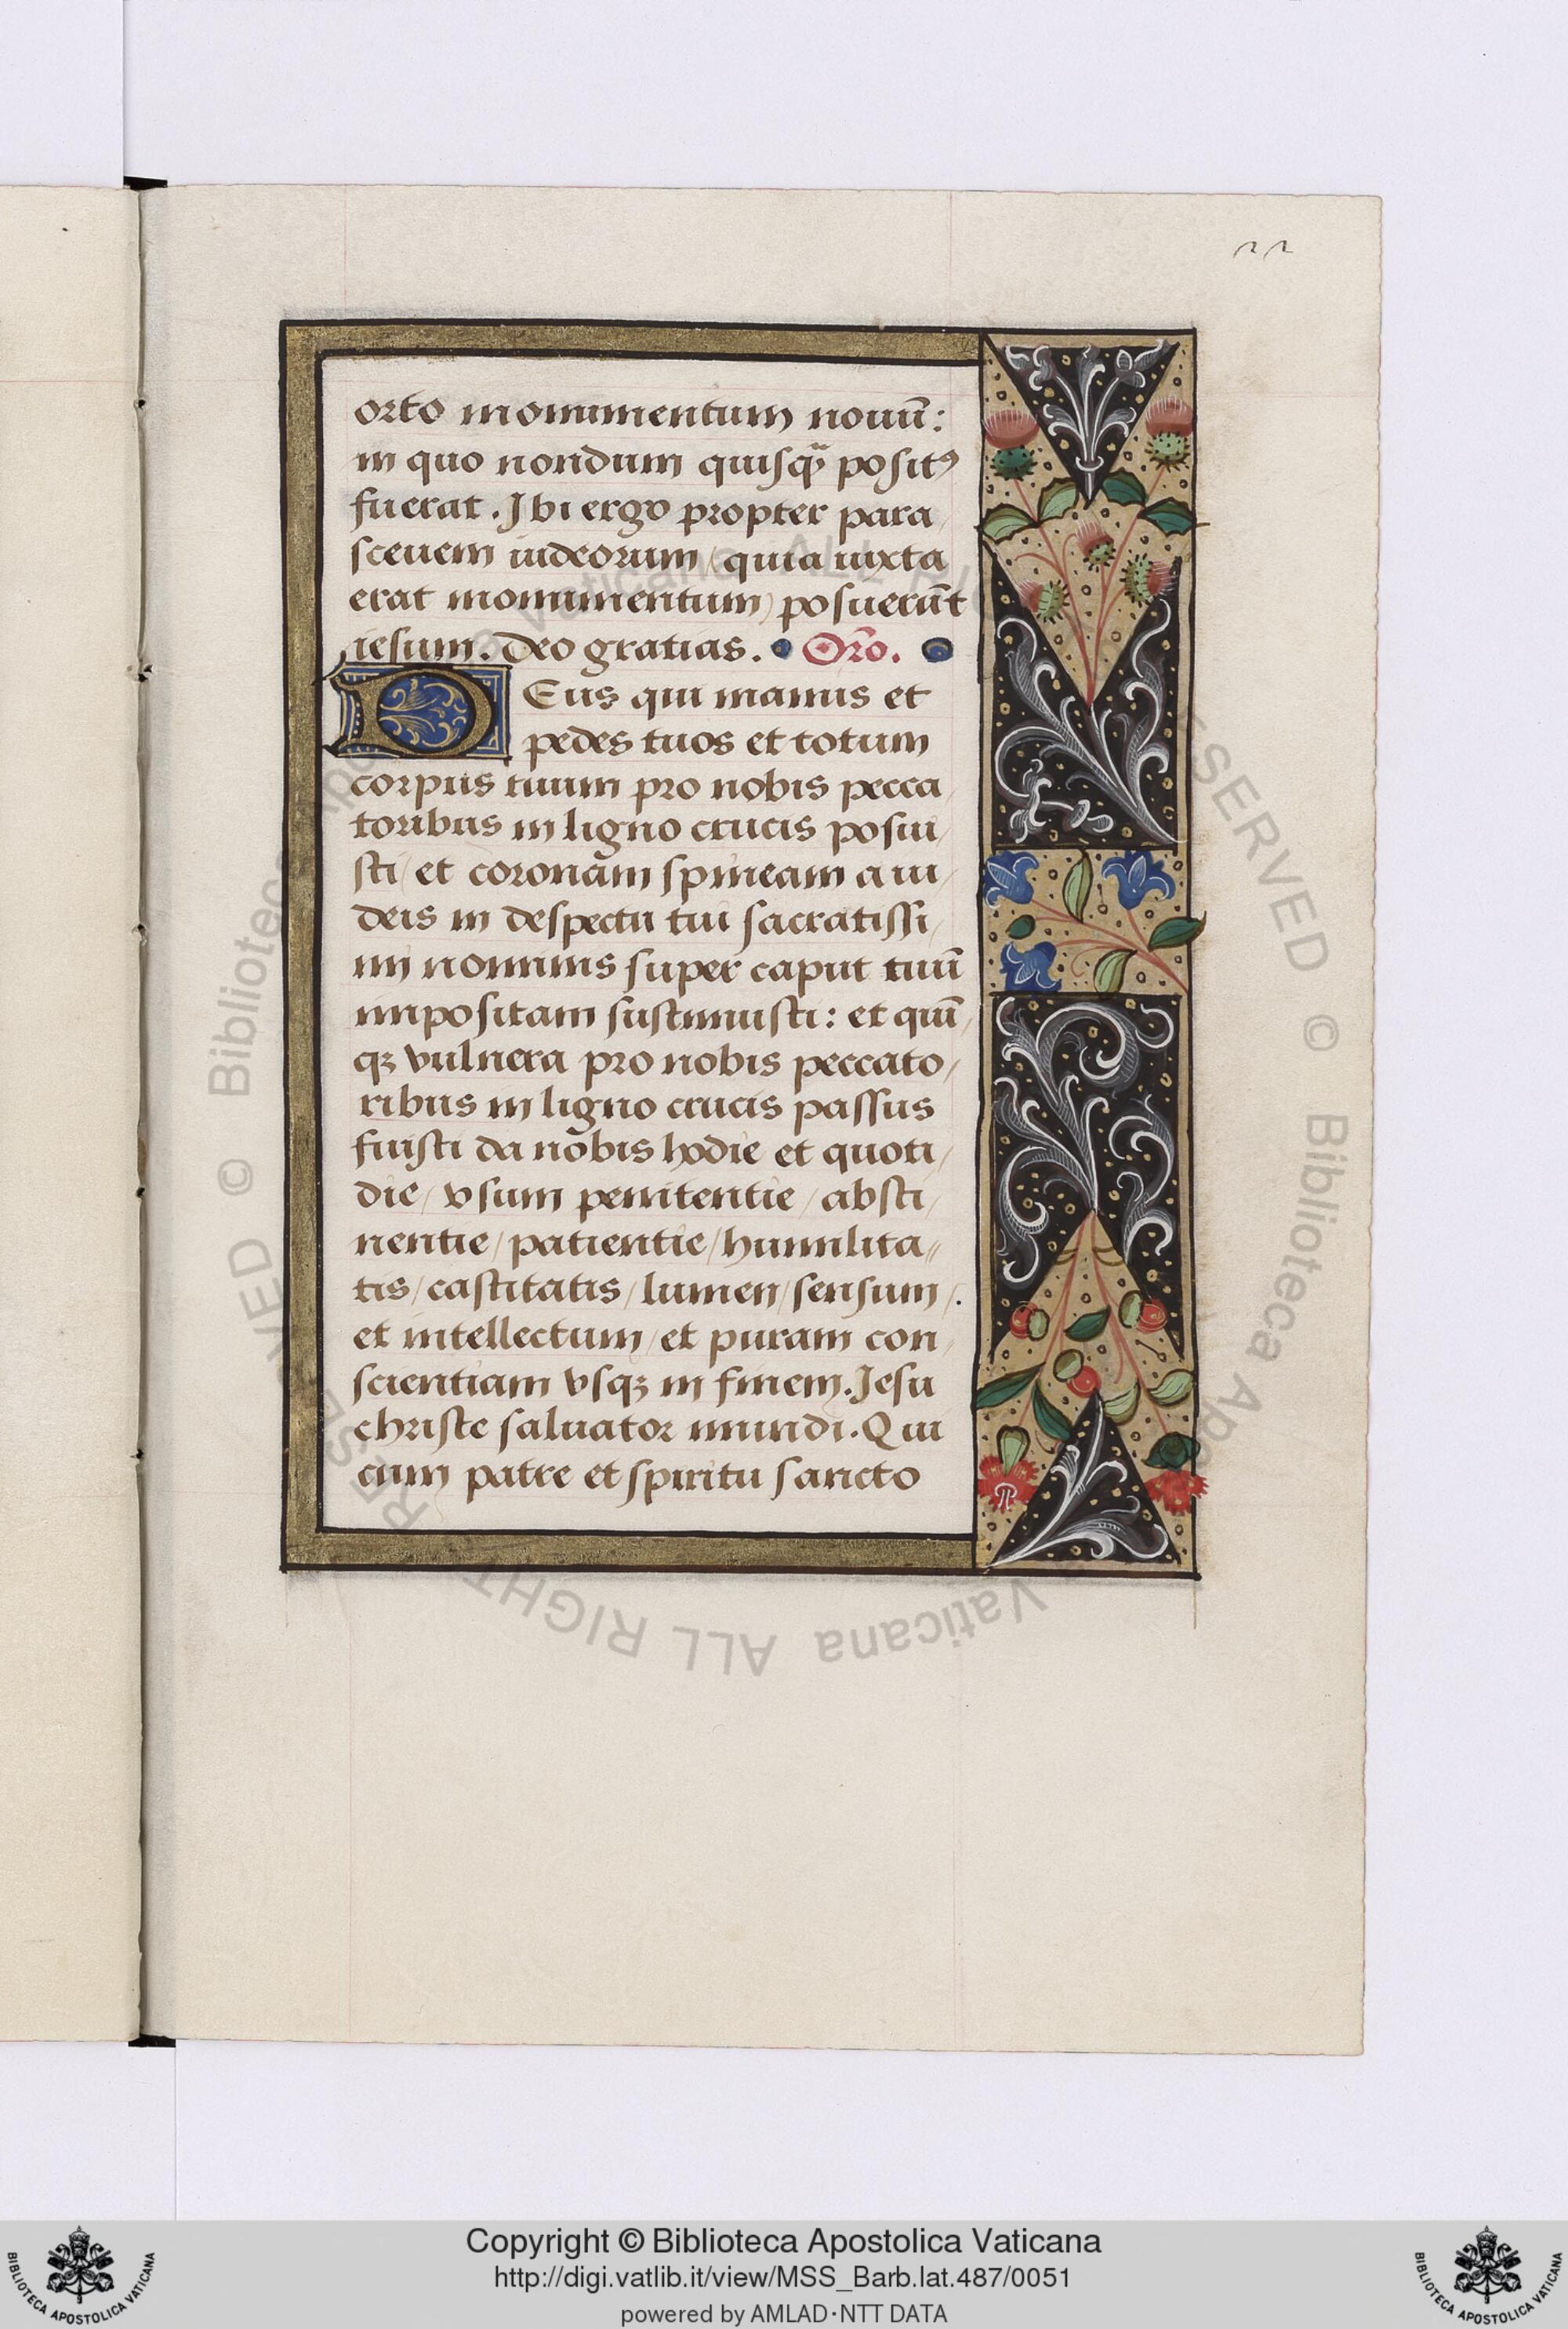 22
orto monumentum nouū:
in quo nondum quisq̃ positꝰ
fuerat. Ibi ergo propter para
sceuem iudeorum (quia iuxta
erat monumentum) posuerūt
iesum. Deo gratias. Oro̅.
DEus qui manus et
pedes tuos et totum
corpus tuum pro nobis pecca
toribus in ligno crucis posui/
sti/ et coronam spineam a iu/
deis in despectu tui sacratissi/
mi nominis super caput tuū
impositam sustinuisti: et quī/
qꝫ vulnera pro nobis peccato/
ribus in ligno crucis passus
fuisti da nobis hodie et quoti/
die/ vsum penitentie/ absti/
nentie/ patientie/ humilita//
tis/ castitatis/ lumen/ sensum/.
et intellectum/ et puram con/
scientiam vsqꝫ in finem. Jesu
christe saluator mundi. Qui
cum patre et spiritu sancto
© Biblioteca Apostolica Vaticana ALL RIGHTS RESERVED
© Biblioteca Apostolica Vaticana ALL RIGHTS RESERVED
Copyright © Biblioteca Apostolica Vaticana
http://digi.vatlib.it/view/MSS_Barb.lat.487/0051
powered by AMLAD·NTT DATA
BIBLIOTECA APOSTOLICA VATICANA
BIBLIOTECA APOSTOLICA VATICANA